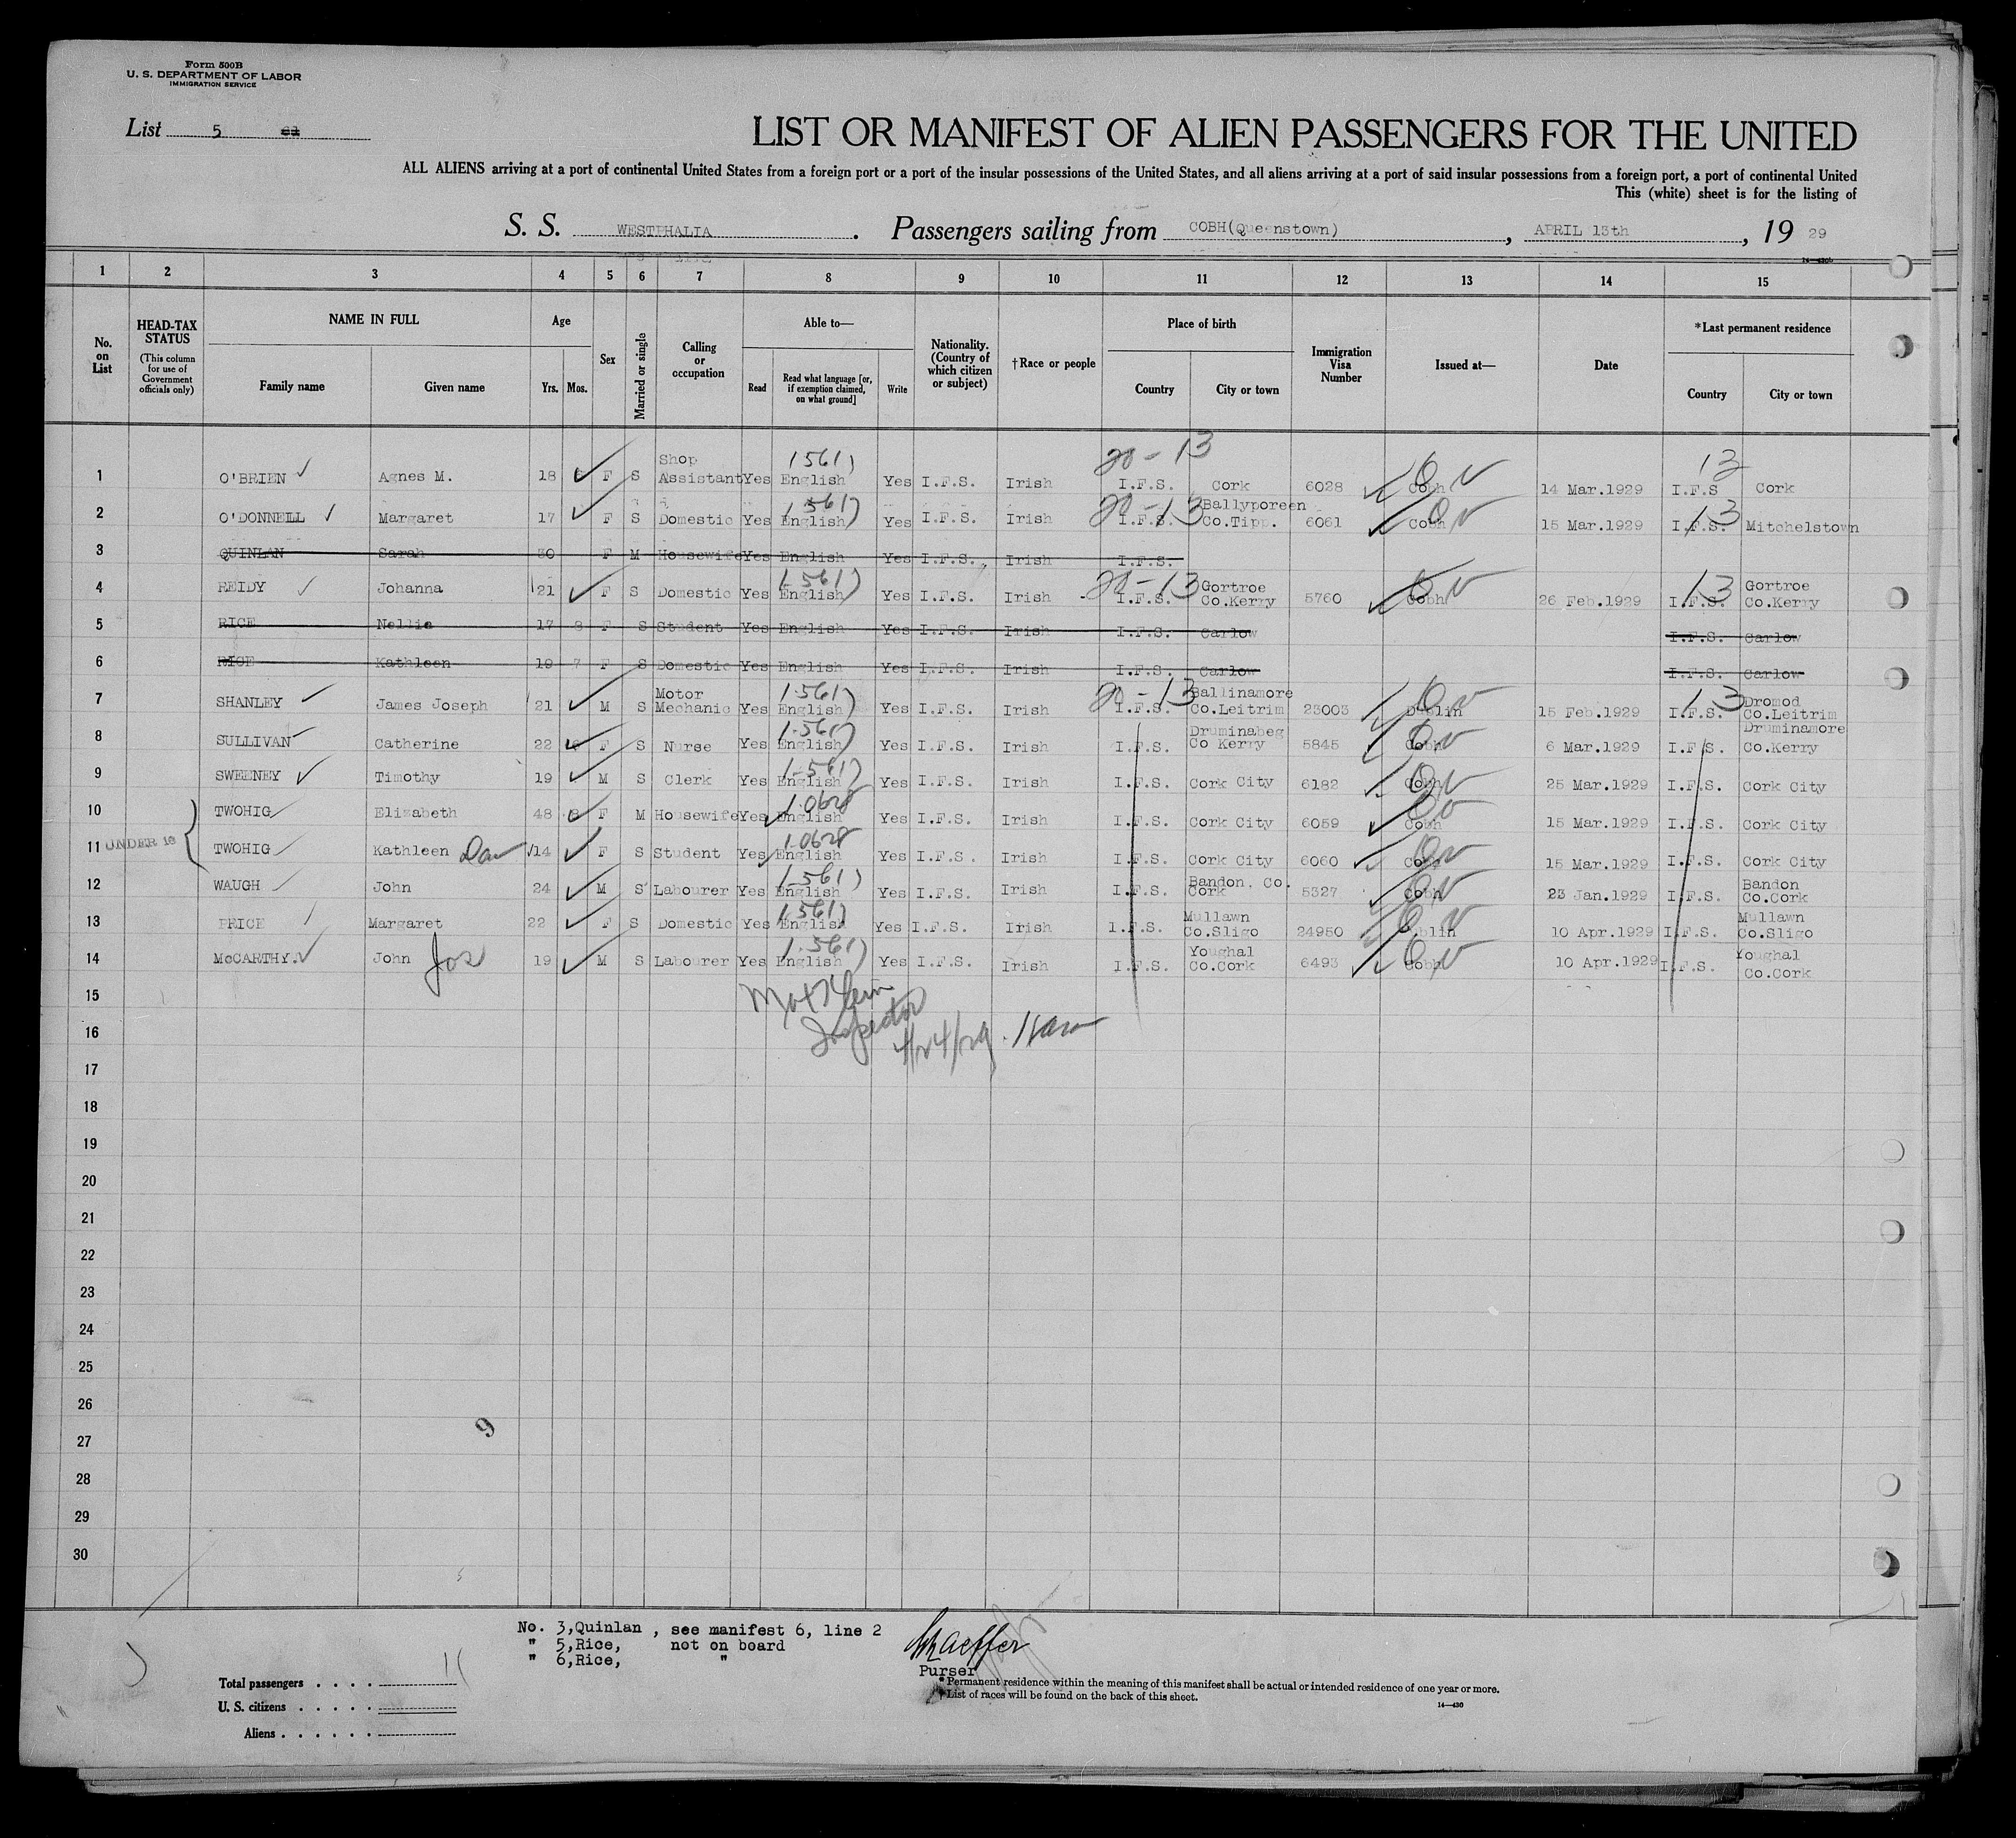 Form 500B
U. S. DEPARTMENT OF LABOR
IMMIGRATION SERVICE
List 5
LIST OR MANIFEST OF ALIEN PASSENGERS FOR THE UNITED
ALL ALIENS arriving at a port of continental United States from a foreign port or a port of the insular possessions of the United States, and all aliens arriving at a port of said insular possessions from a foreign port, a port of continental United
This (white) sheet is for the listing of
S. S. WESTPHALIA. Passengers sailing from COBH(Queenstown), APRIL 13th, 19 29
1 2 3 4 5 6 7 8 9 10 11 12 13 14 15
No. on List
HEAD-TAX STATUS
(This column for use of Government officials only)
NAME IN FULL
Family name Given name
Age
Yrs. Mos.
Sex
Married or single
Calling or occupation
Able to—
Read Read what language [or, if exemption claimed, on what ground] Write
Nationality. (Country of which citizen or subject)
†Race or people
Place of birth
Country City or town
Immigration Visa Number
Issued at—
Date
*Last permanent residence
Country City or town
1 O'BRIEN Agnes M. 18 F S Shop Assistant Yes 1561) English Yes I.F.S. Irish 20-13 I.F.S. Cork 6028 Cobh 14 Mar.1929 13 I.F.S Cork
2 O'DONNELL Margaret 17 F S Domestic Yes 1561) English Yes I.F.S. Irish 20-13 I.F.S. Ballyporeen Co.Tipp. 6061 Cobh 15 Mar.1929 13 I.F.S. Mitchelstown
3 QUINLAN Sarah 30 F M Housewife Yes English Yes I.F.S. Irish I.F.S.
4 REIDY Johanna 21 F S Domestic Yes 1-561) English Yes I.F.S. Irish 20-13 I.F.S. Gortroe Co.Kerry 5760 Cobh 26 Feb.1929 13 I.F.S. Gortroe Co.Kerry
5 RICE Nellie 17 8 F S Student Yes English Yes I.F.S. Irish I.F.S. Carlow I.F.S. Carlow
6 RICE Kathleen 19 7 F S Domestic Yes English Yes I.F.S. Irish I.F.S. Carlow I.F.S. Carlow
7 SHANLEY James Joseph 21 M S Motor Mechanic Yes 1-561) English Yes I.F.S. Irish 20-13 I.F.S. Ballinamore Co.Leitrim 23003 Dublin 15 Feb.1929 13 I.F.S. Dromod Co.Leitrim
8 SULLIVAN Catherine 22 F S Nurse Yes 1-561) English Yes I.F.S. Irish I.F.S. Druminabeg Co Kerry 5845 Cobh 6 Mar.1929 I.F.S. Druminamore Co.Kerry
9 SWEENEY Timothy 19 M S Clerk Yes 1-561) English Yes I.F.S. Irish I.F.S. Cork City 6182 Cobh 25 Mar.1929 I.F.S. Cork City
10 TWOHIG Elizabeth 48 8 F M Housewife Yes 1-0628 English Yes I.F.S. Irish I.F.S. Cork City 6059 Cobh 15 Mar.1929 I.F.S. Cork City
11 UNDER 16 TWOHIG Kathleen Dau 14 F S Student Yes 1-0628 English Yes I.F.S. Irish I.F.S. Cork City 6060 Cobh 15 Mar.1929 I.F.S. Cork City
12 WAUGH John 24 M S Labourer Yes 1-561) English Yes I.F.S. Irish I.F.S. Bandon, Co. Cork 5327 Cobh 23 Jan.1929 I.F.S. Bandon Co.Cork
13 PRICE Margaret 22 F S Domestic Yes 1-561) English Yes I.F.S. Irish I.F.S. Mullawn Co.Sligo 24950 Dublin 10 Apr.1929 I.F.S. Mullawn Co.Sligo
14 McCARTHY. John Jos 19 M S Labourer Yes 1-561) English Yes I.F.S. Irish I.F.S. Youghal Co.Cork 6493 Cobh 10 Apr.1929 I.F.S. Youghal Co.Cork
15
Inspector
16
4/24/29
17
18
19
20
21
22
23
24
25
26
9
27
28
29
30
No. 3,Quinlan , see manifest 6, line 2
" 5,Rice, not on board
" 6,Rice, "
Schaeffer
Purser
Total passengers . . . . 11
U. S. citizens . . . . .
Aliens . . . . . .
*Permanent residence within the meaning of this manifest shall be actual or intended residence of one year or more.
†List of races will be found on the back of this sheet.
14—430